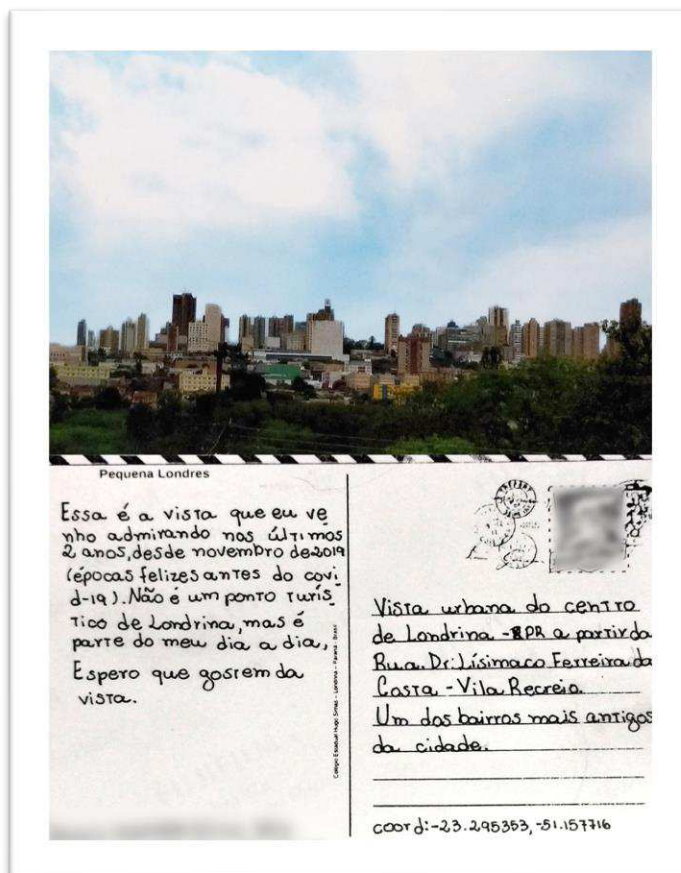 Pequena Londres
Essa é a vista que eu ve
nho admirando nos últimos
2 anos, desde novembro de 2019
(épocas felizes antes do covi
d-19). Não é um ponto turís
tico de Londrina, mas é
parte do meu dia a dia,
Espero que gostem da
vista.
Colégio Estadual Hugo Simas - Londrina - Paraná - Brasil
Vista urbana do centro
de Londrina - PR a partir da
Rua. Dr. Lísimaco Ferreira da
Costa - Vila Recreio.
Um dos bairros mais antigos
da cidade.
coord: -23.295353, -51.157716